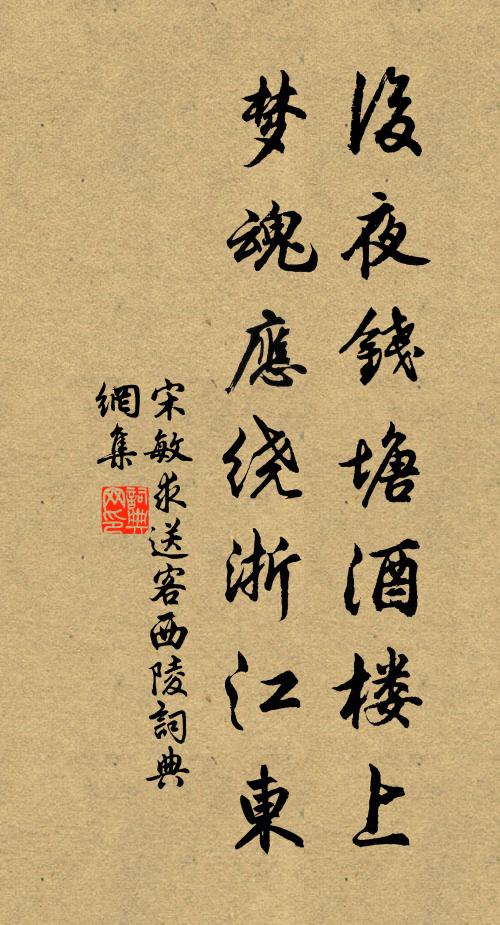 後夜錢塘酒楼上
梦魂應绕浙江東
宋敏求送客西陵詞典
網集
詞典
网印